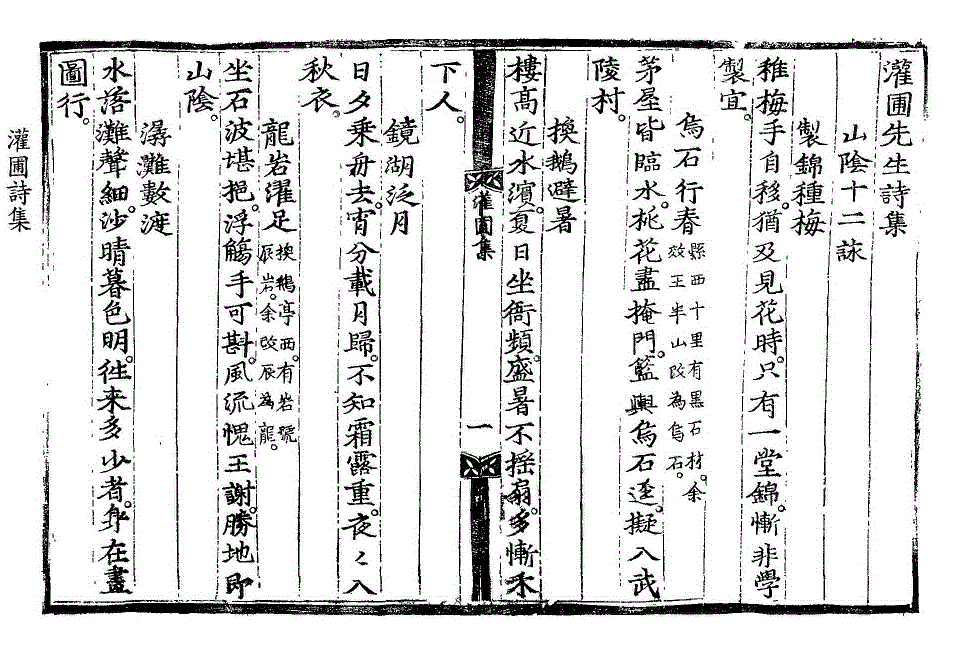 灌圃先生詩集
山陰十二詠
製錦種梅
稚梅手自移。猶及見花時。只有一堂錦。慚非學
製宜。
烏石行春
縣西十里有黑石村。余
效王半山改為烏石。
茅屋皆臨水。桃花盡掩門。籃輿烏石逕。擬入武
陵村。
換鵝避暑
樓高近水濱。夏日坐衙頻。盛暑不搖扇。多慚禾
下人。
鏡湖泛月
日夕乘舟去。宵分載月歸。不知霜露重。夜〻入
秋衣。
龍岩濯足
換鵝亭西。有岩號
辰岩。余改辰為龍。
坐石波堪挹。浮觴手可斟。風流愧王謝。勝地即
山陰。
潺灘數渡
水落灘聲細。沙晴暮色明。往來多少者。身在畫
圖行。
灌圃集
一
灌圃詩集